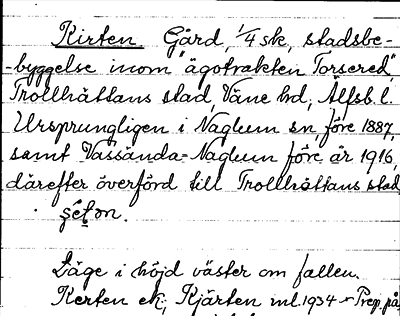 Kirten Gård, 1/4 sk, stadsbe-
-byggelse inom "ägotrakten Torsered",
Trollhättans stad, Väne hd, Älfsb. l.
Ursprungligen i Naglum sn, före 1887,
samt Vassända-Naglum före år 1916,
därefter överförd till Trollhättans stad
Läge i höjd väster om fallen.
Kerten ek; Kjärten ml. 1934 - Prep. på